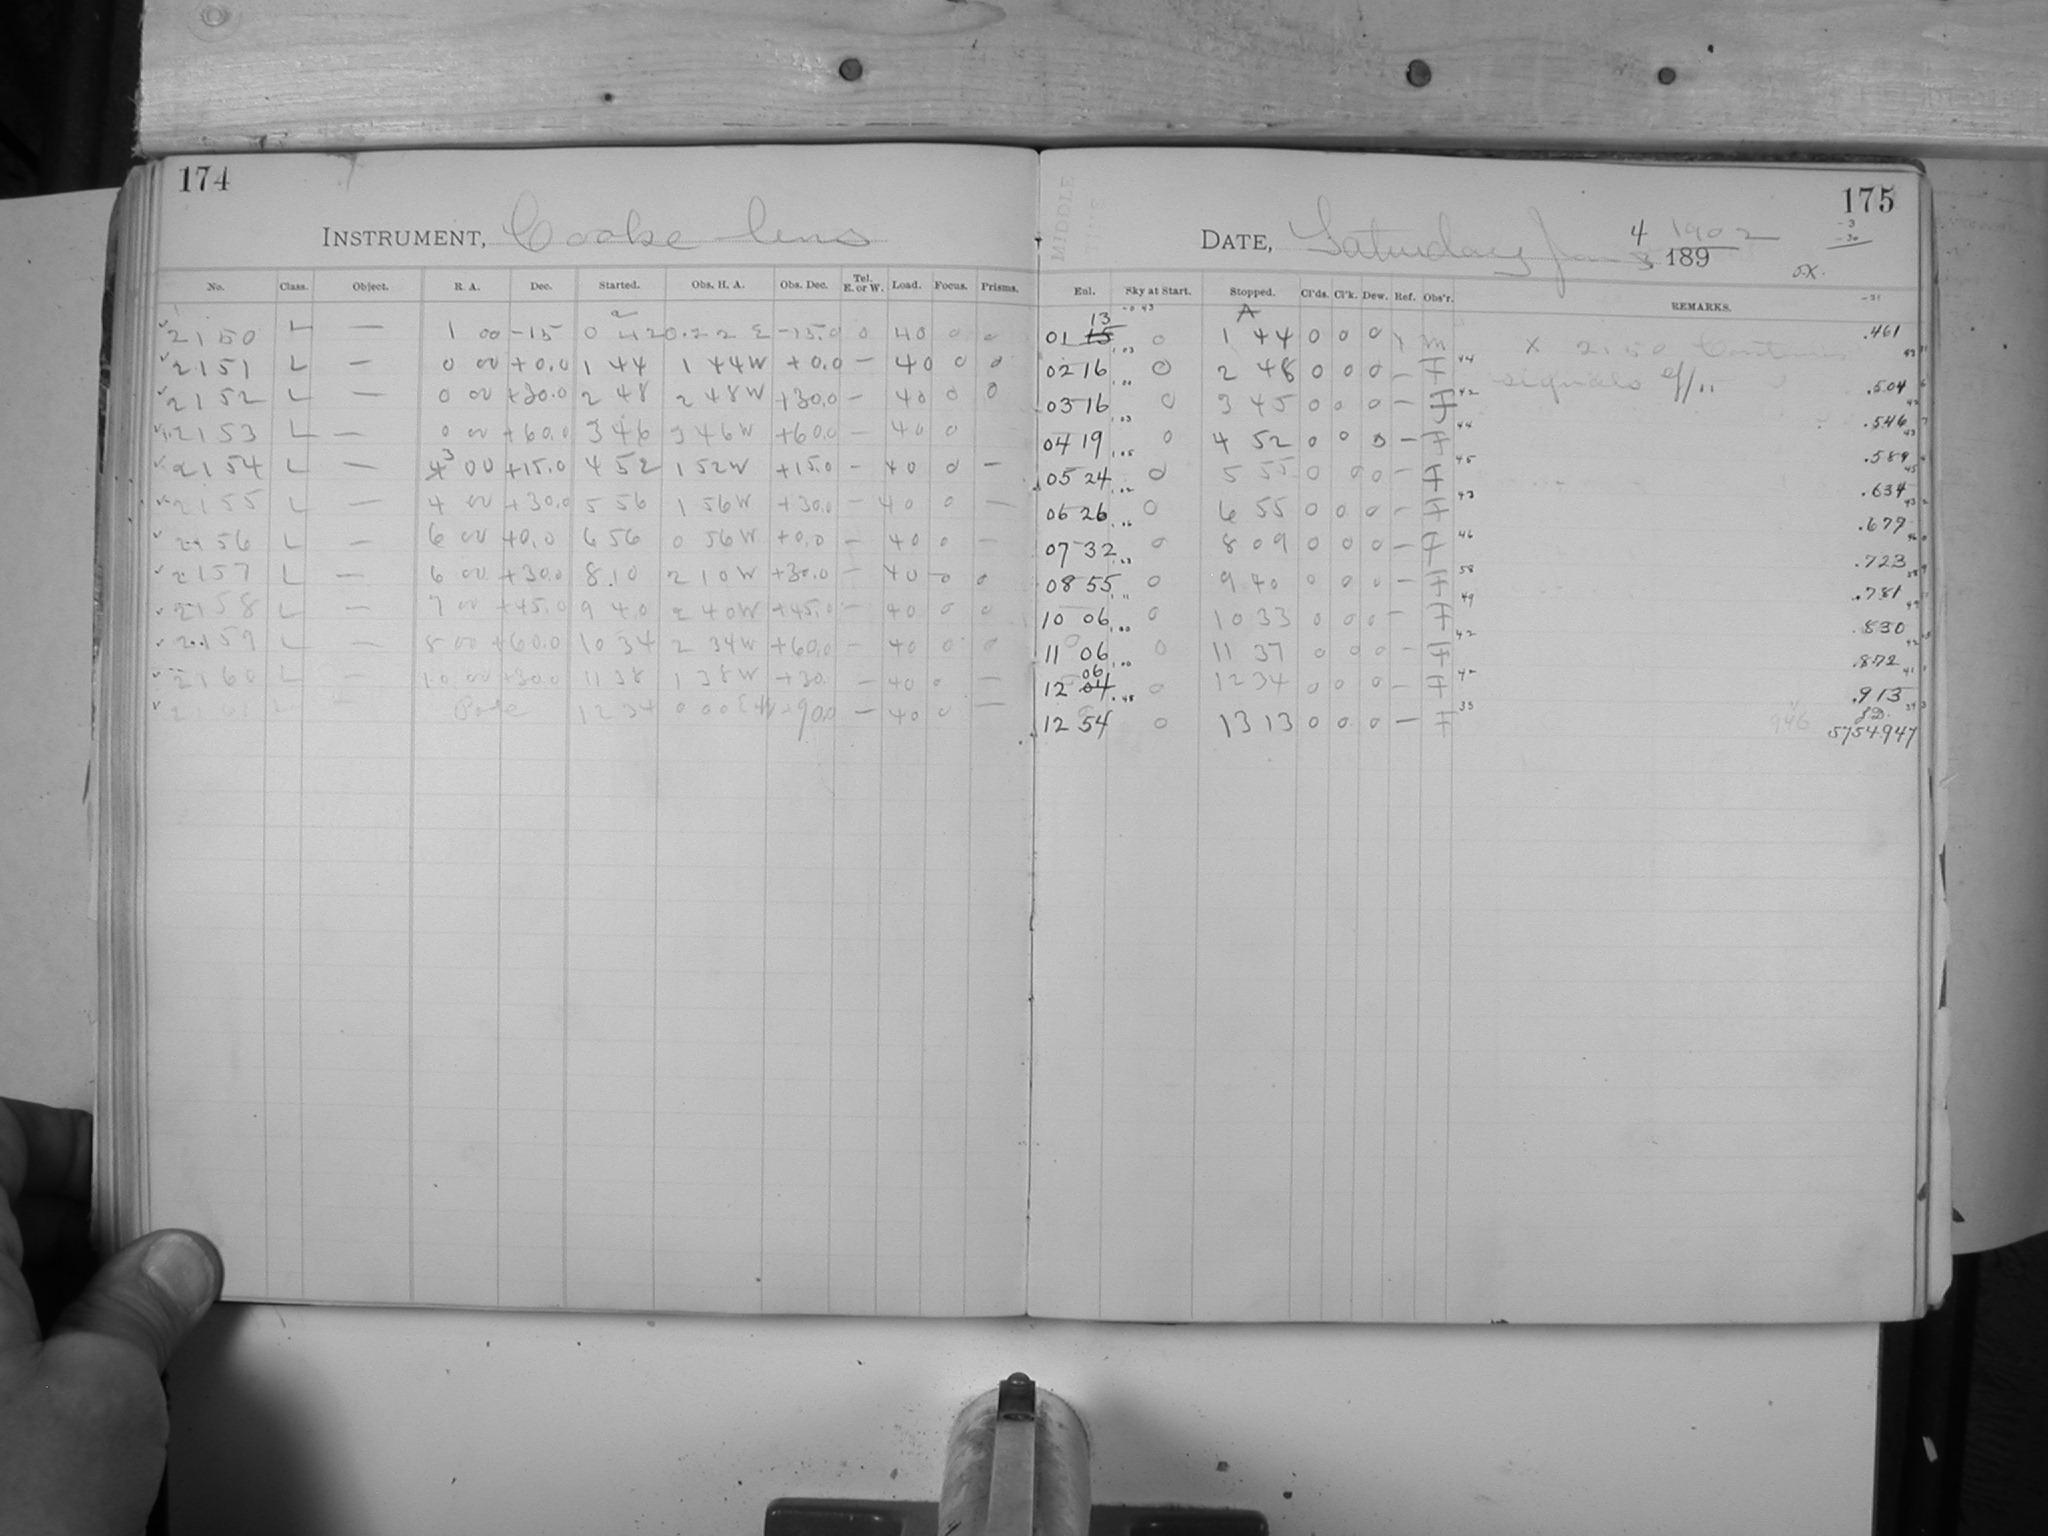 174
INSTRUMENT, Cooke lens
No. Class. Object. R. A. Dec. Started. Obs. H. A. Obs. Dec. Tel. E. or W. Load. Focus. Prisms.
2150 L — 1 00 -15 0 42 0.22 E -15.0 0 40 0 0
2151 L — 0 00 +0.0 1 44 1 44W +0.0 — 40 0 0
2152 L — 0 00 +30.0 2 48 2 48W +30.0 — 40 0 0
2153 L — 0 00 +60.0 3 46 3 46W +60.0 — 40 0
2154 L — 3 00 +15.0 4 52 1 52W +15.0 — 40 0 —
2155 L — 4 00 +30.0 5 56 1 56W +30.0 — 40 0 —
2156 L — 6 00 +0.0 6 56 0 56W +0.0 — 40 0 —
2157 L — 6 00 +30.0 8.10 2 10W +30.0 — 40 0 0
2158 L — 7 00 +45.0 9 40 2 40W +45.0 — 40 0 0
2159 L — 8 00 +60.0 10 34 2 34W +60.0 — 40 0 0
2160 L — 10 00 +30.0 11 38 1 38W +30. — 40 0 —
2161 L — Pole 12 34 0 00 +90.0 — 40 0 —
MIDDLE
175
-3
-30
DATE, Saturday Jan 4 1902
189
J.X.
Enl. Sky at Start. Stopped. Cl'ds. Cl'k. Dew. Ref. Obs'r. REMARKS.
-31
13 -0 43 A
01 15 0 1 44 0 0 0 x m x 2150 Contains .461
1.03
02 16 0 2 48 0 0 0 — F 44 signals .504
1.00
03 16 0 3 45 0 0 0 — F 42 .546
1.03
04 19 0 4 52 0 0 0 — F 44 .589
1.05
05 24 0 5 55 0 0 0 — F 45 .634
1.02
06 26 0 6 55 0 0 0 — F 43 .679
1.06
07 32 0 8 09 0 0 0 — F 46 .723
1.23
08 55 0 9 40 0 0 0 — F 58 .781
1.11
10 06 0 10 33 0 0 0 — F 49 .830
1.00
11 06 0 11 37 0 0 0 — F 42 .872
1.00
06
12 04 0 12 34 0 0 0 — F 42 .913
.48
12 54 0 13 13 0 0 0 — F 33 946 J.D. 5754.947